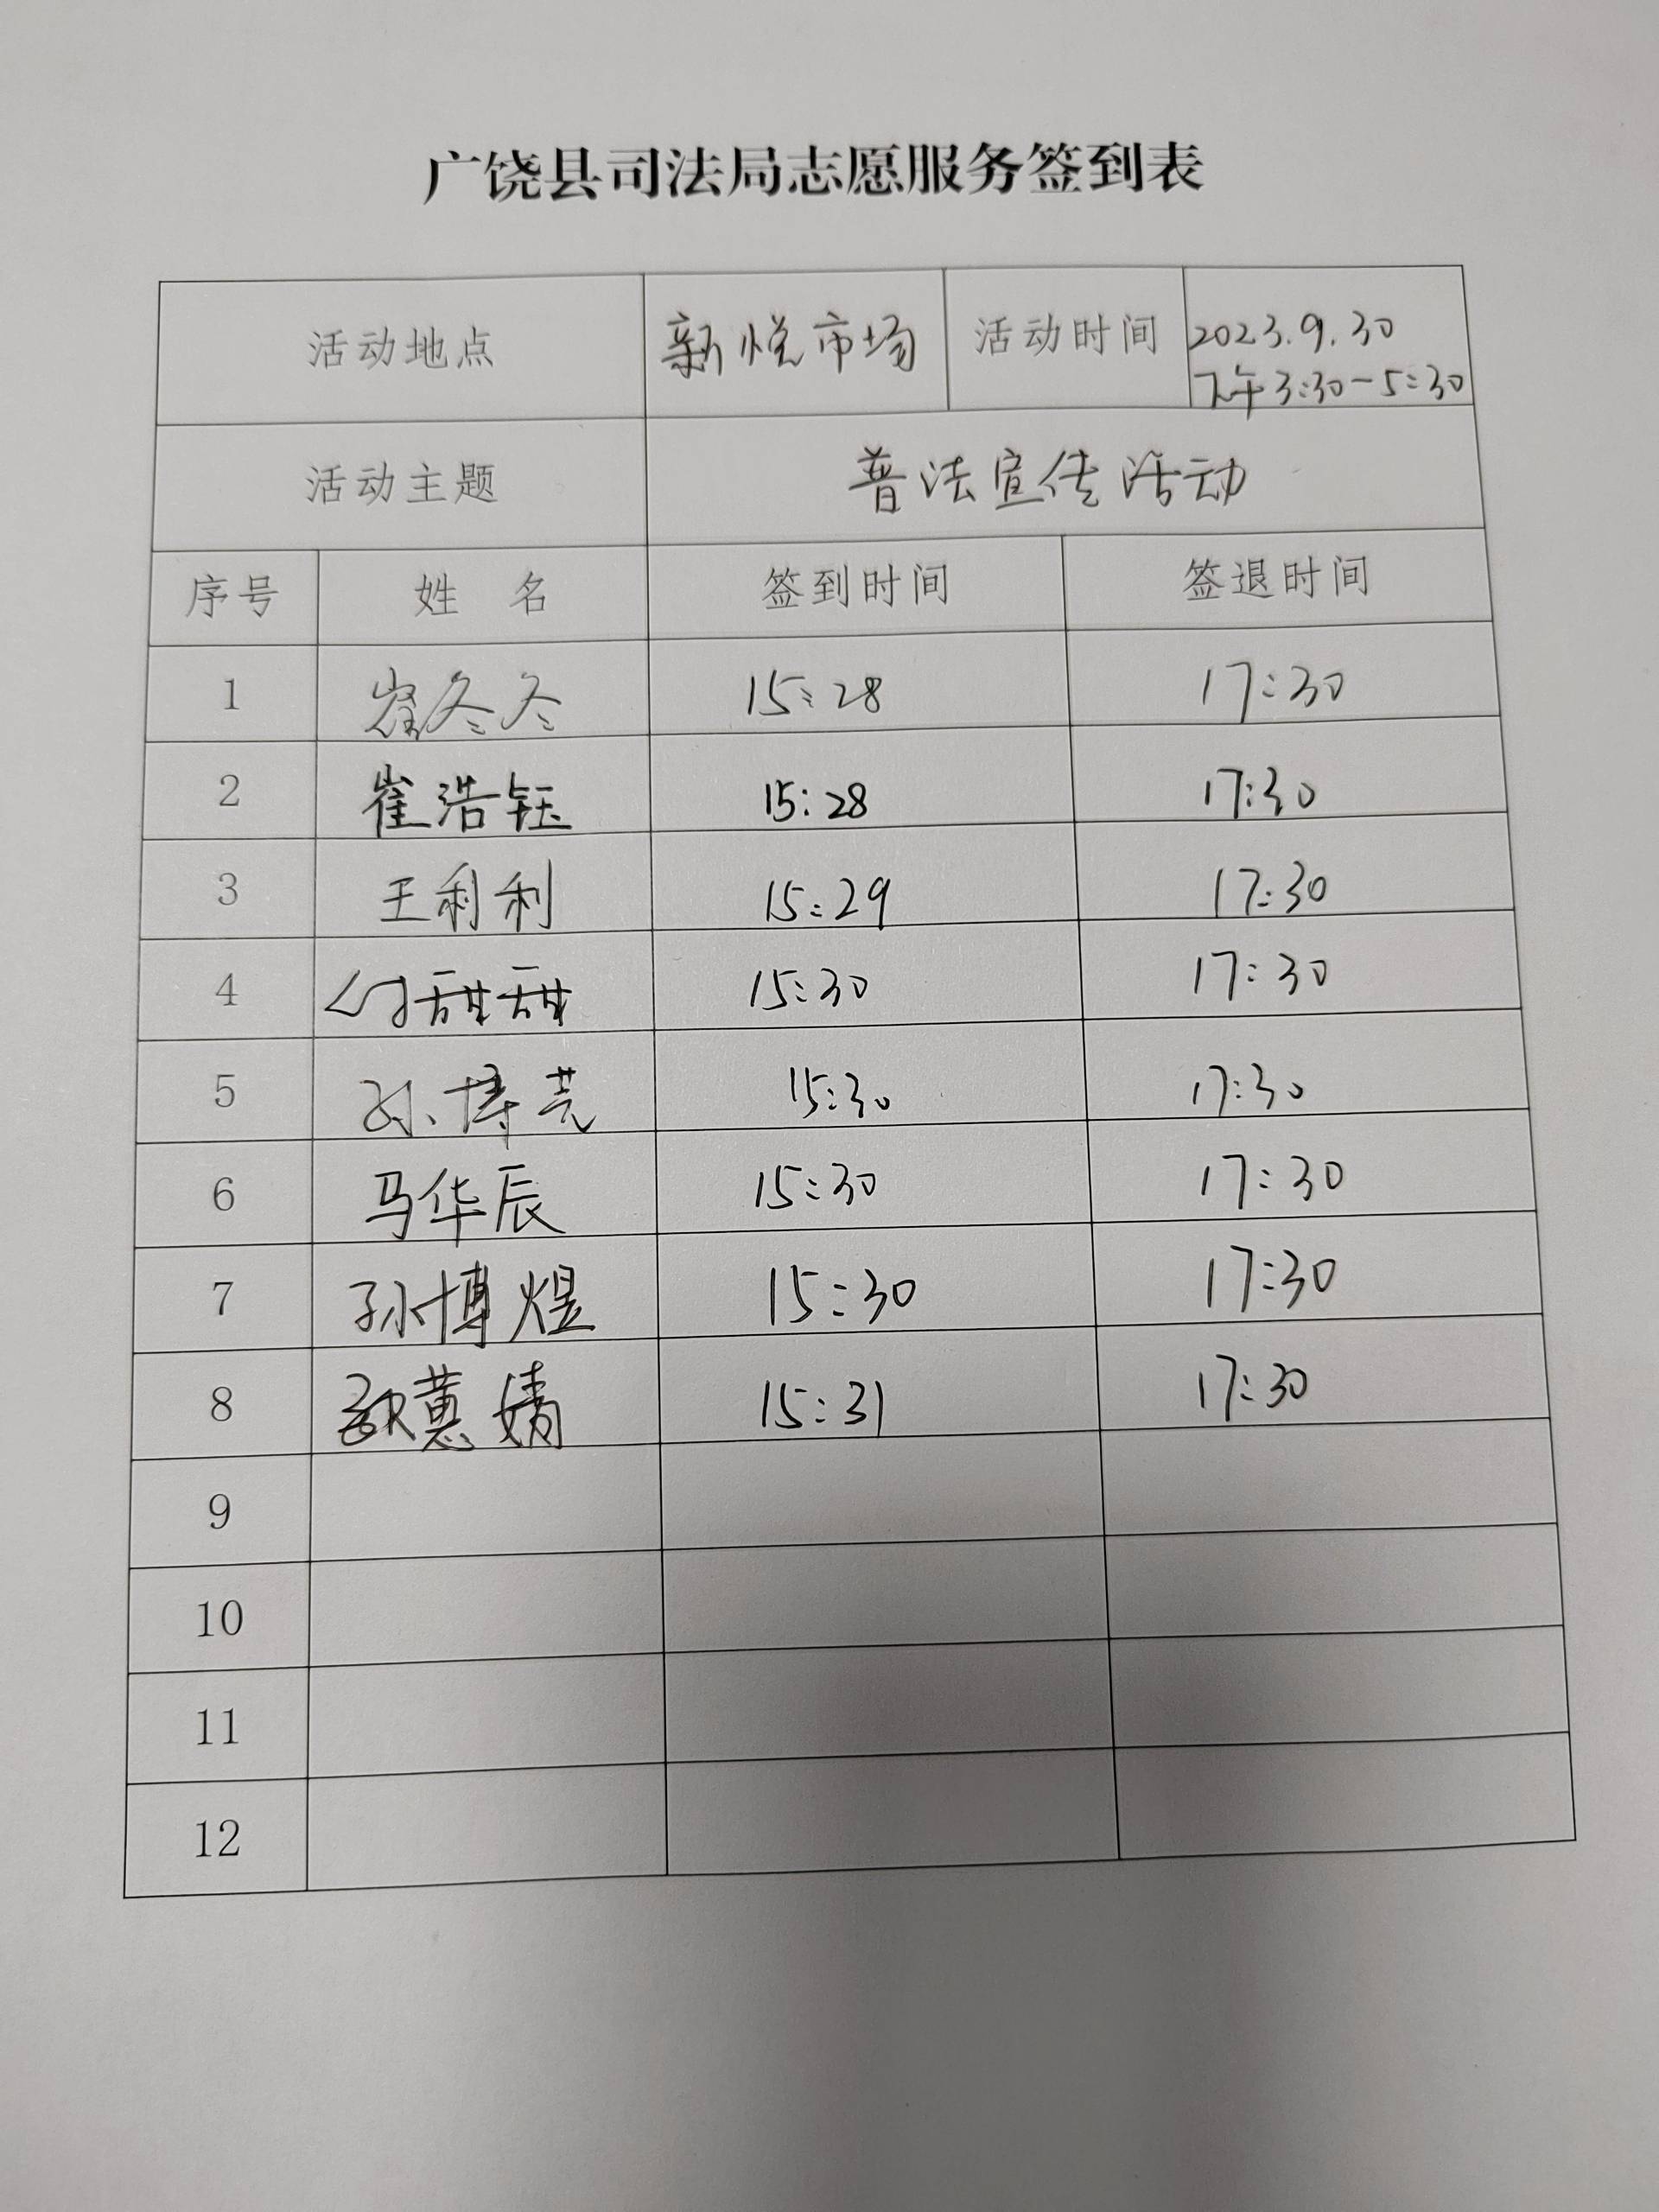 广饶县司法局志愿服务签到表
活动地点 新悦市场 活动时间 2023.9.30
下午3:30-5:30
活动主题 普法宣传活动
序号 姓 名 签到时间 签退时间
1 崔冬冬 15:28 17:30
2 崔浩钰 15:28 17:30
3 王利利 15:29 17:30
4 甜甜 15:30 17:30
5 孙博芸 15:30 17:30
6 马华辰 15:30 17:30
7 孙博煜 15:30 17:30
8 蕙婧 15:31 17:30
9
10
11
12